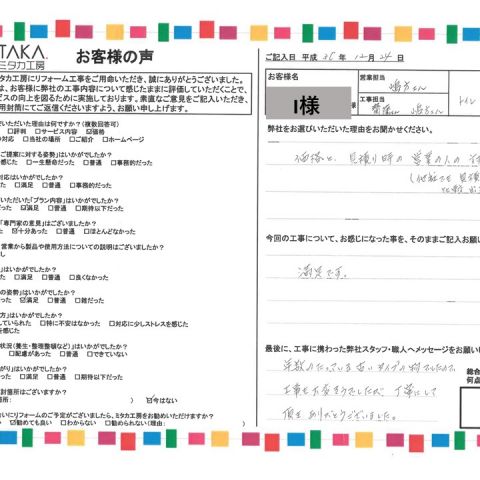 TAKA.
ミタカ工房
お客様の声
タカ工房にリフォーム工事をご用命いただき、誠にありがとうございました。
は、お客様に弊社の工事内容について感じたままに評価していただくことで、
ビスの向上を図るために実施しております。率直なご意見をご記入いただき、
用封筒にてご返信くださいますよう、お願い申し上げます。
いただいた理由は何ですか?(複数回答可)
□評判 □サービス内容 ☑価格
の対応 □当社の場所 □ご紹介 □ホームページ
ご提案に対する姿勢」はいかがでしたか?
感じた □一生懸命だった □普通 □事務的だった
対応はいかがでしたか?
った □満足 □普通 □事務的だった
いただいた「プラン内容」はいかがでしたか?
った ☑満足 □普通 □期待以下だった
「専門家の意見」はございましたか?
た ☑十分あった □普通 □ほとんどなかった
営業から製品や使用方法についての説明はございましたか?
」はいかがでしたか?
った □満足 □普通 □良くなかった
の姿勢」はいかがでしたか?
った ☑満足 □普通 □雑だった
方」はいかがでしたか?
していられた □特に不安はなかった □対応に少しストレスを感じた
を感じた
状況(養生・整理整頓など)」はいかがでしたか?
□配慮があった □普通 □できていない
がり」はいかがでしたか?
った □満足 □普通 □期待以下だった
討箇所はございますか?
所: ) ☑今はない
いにリフォームのご予定がございましたら、ミタカ工房をお勧めいただけますか?
い ☑勧めても良い □わからない □勧められない(理由: )
ご記入日 平成 30 年 12 月 24 日
お客様名
I様
様
営業担当
工事担当
トイレ
弊社をお選びいただいた理由をお聞かせください。
価格と、見積り時の営業の人の対
(他社でも見積
比較
今回の工事について、お感じになった事を、そのままご記入お願い
満足です。
最後に、工事に携わった弊社スタッフ・職人へメッセージをお願い
年数のたっている古いタイプの
工事も大変そうでしたが 丁寧にして
頂き ありがとうございました。
総合
何点